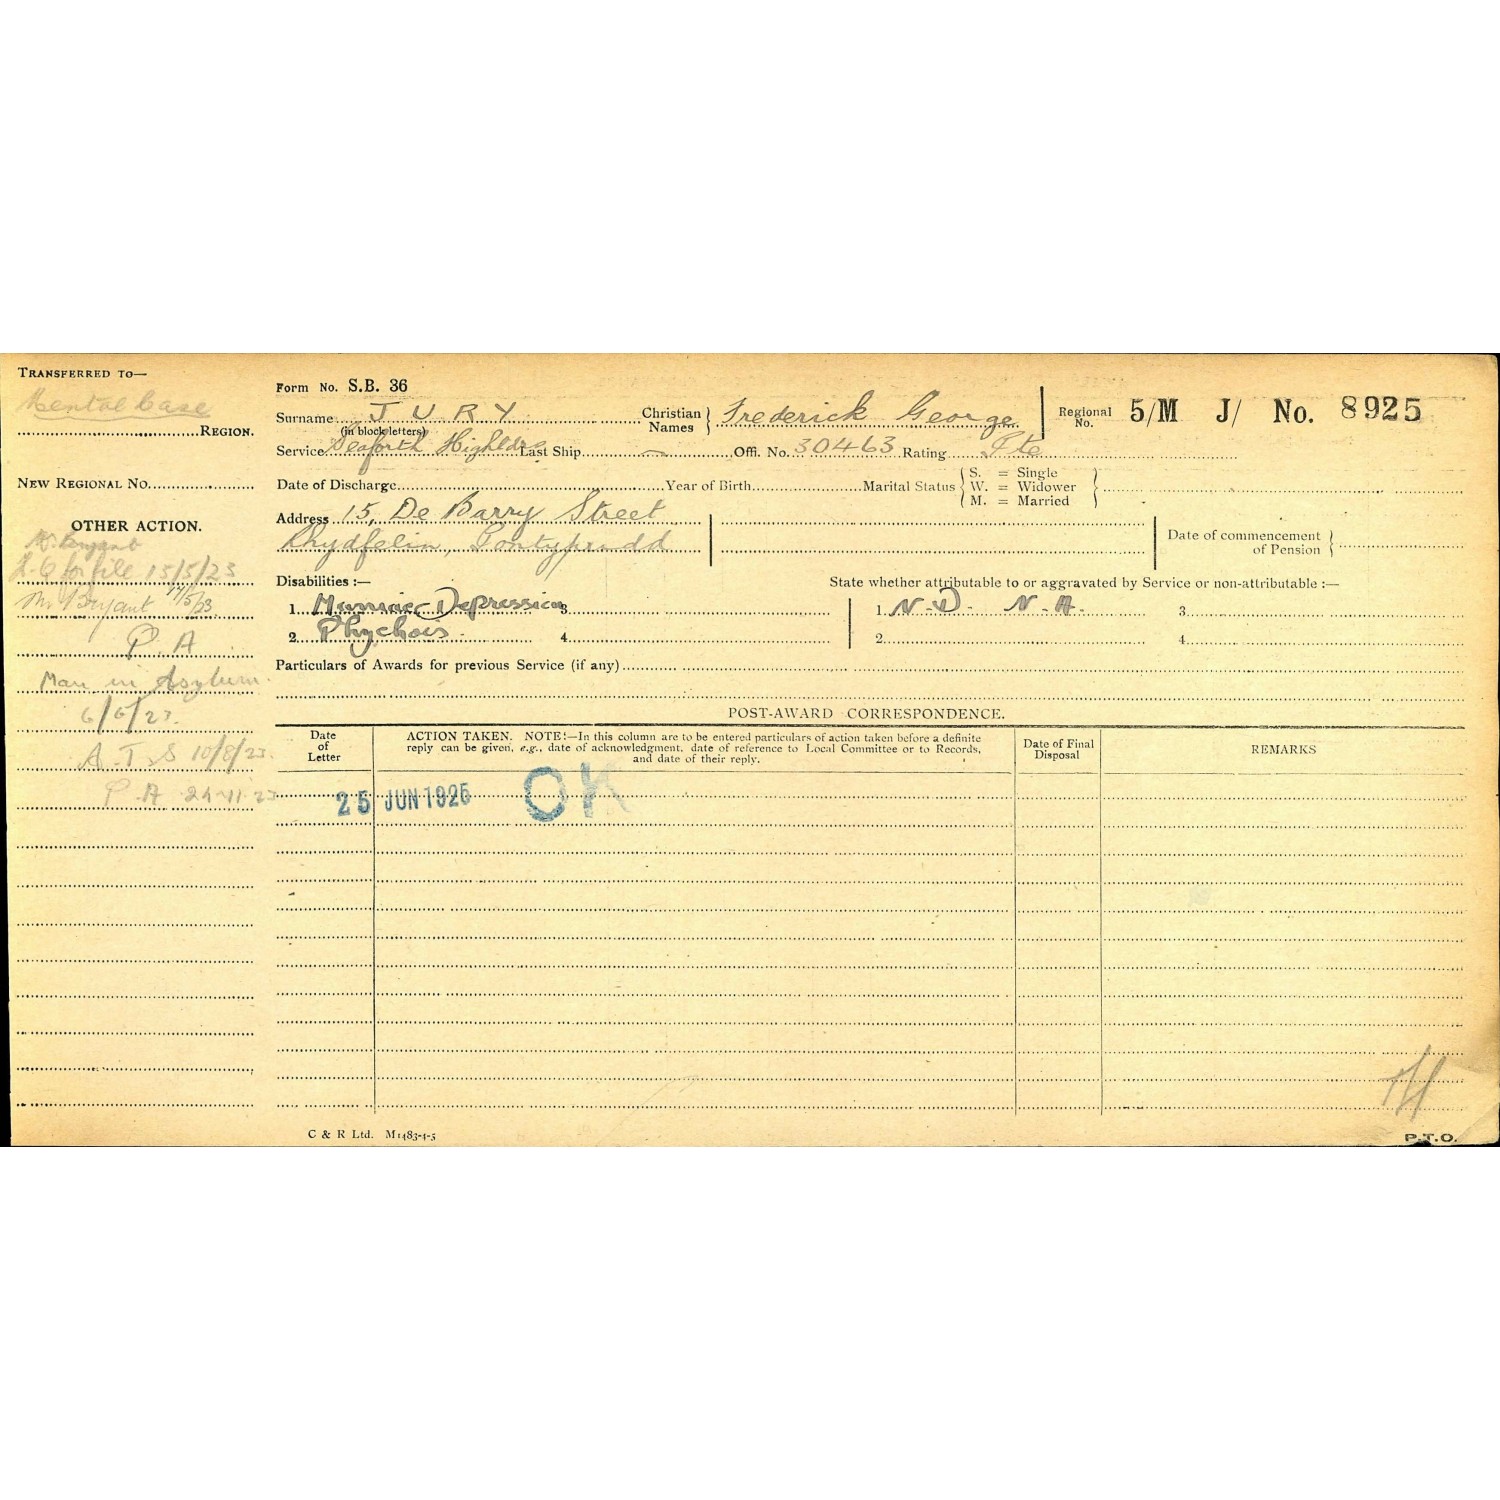 TRANSFERRED TO—
Mental Case
REGION.
NEW REGIONAL No.
OTHER ACTION.
Mr. Bryant
for file 15/5/23
Mr Bryant 17/5/23
P. A
Man in Asylum.
6/6/23.
A. T. S 10/8/23.
P. A 24-11-23
Form No. S.B. 36
Surname J U R Y
(in block letters)
Christian Names } Frederick George
Regional No. 5/M J/ No. 8925
Service Seaforth Highldrs Last Ship — Offl. No. 30463 Rating Pte
Date of Discharge Year of Birth Marital Status { S. = Single
W. = Widower
M. = Married }
Address 15, De Barry Street
Rhydfelin, Pontypridd
Date of commencement of Pension }
Disabilities :—
State whether attributable to or aggravated by Service or non-attributable :—
1. Manic Depression 3.
2. Phychois. 4.
1. N. D. N. A. 3.
2. 4.
Particulars of Awards for previous Service (if any)
POST-AWARD CORRESPONDENCE.
Date of Letter
ACTION TAKEN. NOTE:—In this column are to be entered particulars of action taken before a definite
reply can be given, e.g., date of acknowledgment, date of reference to Local Committee or to Records,
and date of their reply.
Date of Final Disposal
REMARKS
25 JUN 1926 OK
C & R Ltd. M1483-4-5
P.T.O.